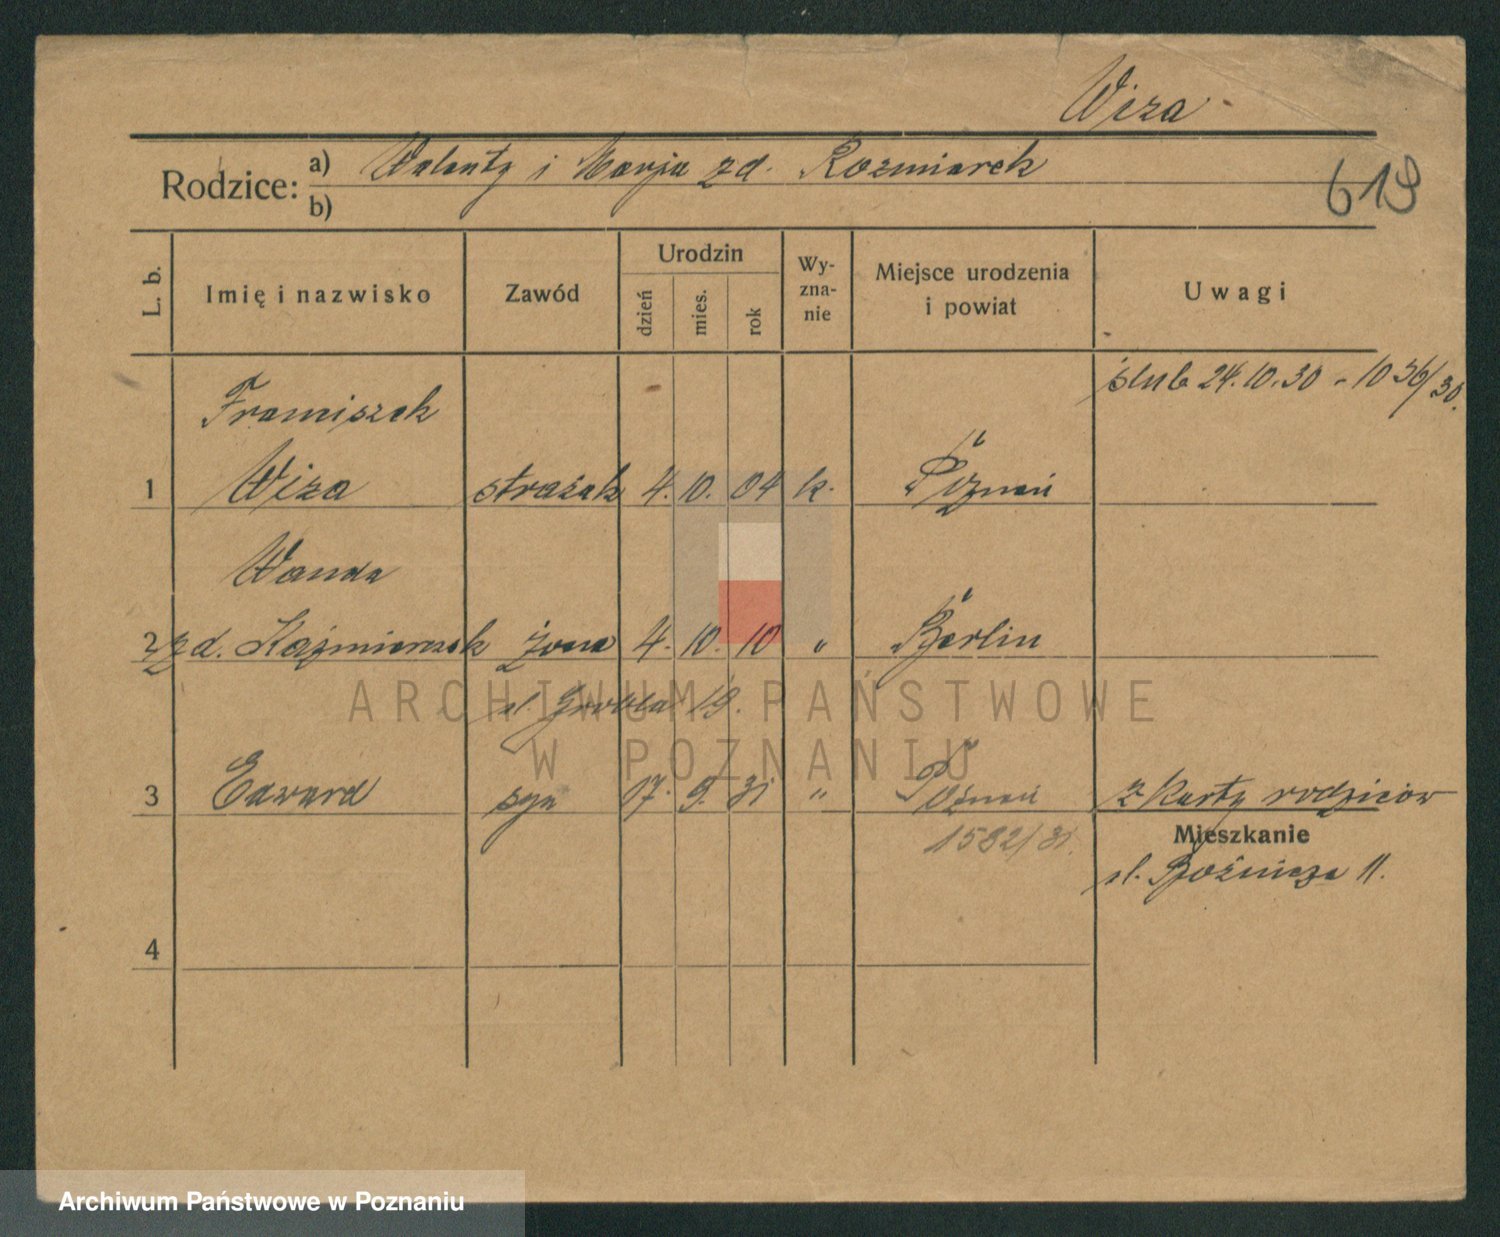 Wiza
Rodzice: a) Walenty i Marja zd. Rozmiarek
b)
619
L. b.
Imię i nazwisko
Zawód
Urodzin
dzień
mies.
rok
Wy-
zna-
nie
Miejsce urodzenia
i powiat
Uwagi
ślub 24.10.30 - 1036/30.
Franciszek
1 Wiza strażak 4. 10. 04 k. Poznań
Wanda
2 zd. Kaźmierczak żona 4. 10. 10 " Berlin
ul. Grobla 19.
3 Edward syn 17. 9. 31 " Poznań z karty rodziców
1582/31.
Mieszkanie
ul. Bóżnicza 11.
4
ARCHIWUM PAŃSTWOWE
W POZNANIU
Archiwum Państwowe w Poznaniu